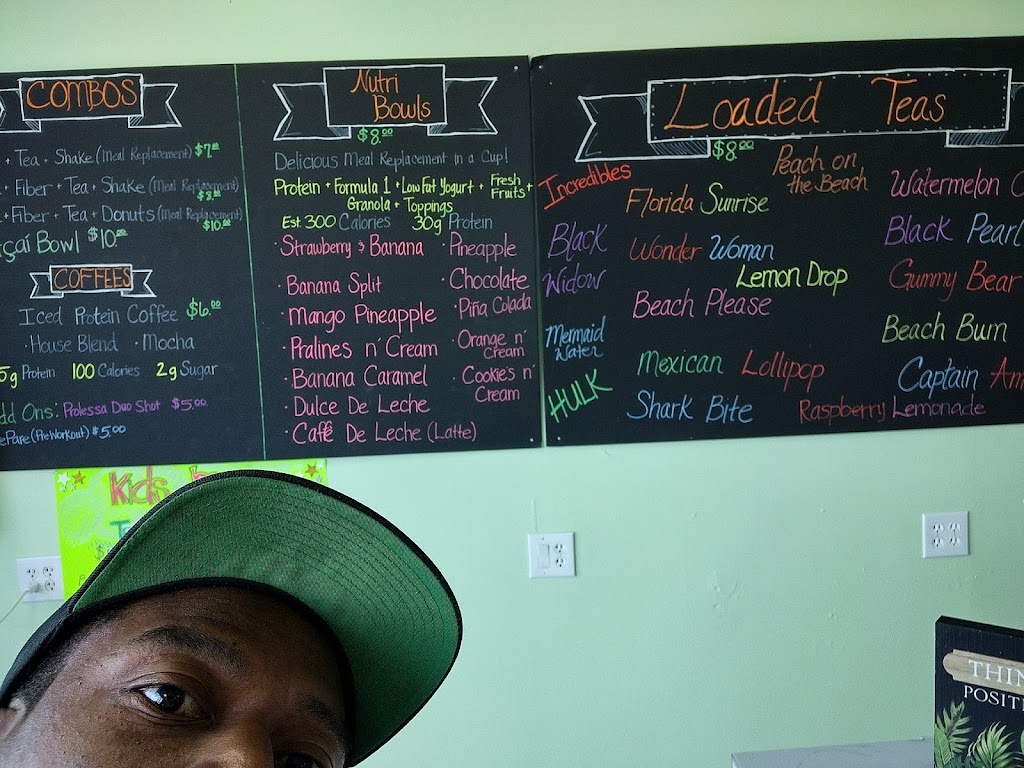 COMBOS
+ Tea + Shake (Meal Replacement) $7.00
+ Fiber + Tea + Shake (Meal Replacement)
+ Fiber + Tea + Donuts (Meal Replacement)
$10.00
Bowl $10.00
COFFEES
Iced Protein Coffee $6.00
· House Blend · Mocha
5g Protein 100 Calories 2g Sugar
Ons: Prolessa Duo Shot $5.00
(PreWorkout) $5.00
Nutri
Bowls
$8.00
Delicious Meal Replacement in a Cup!
Protein + Formula 1 + Low Fat Yogurt + Fresh Fruits +
Granola + Toppings
Est. 300 Calories 30g Protein
· Strawberry & Banana
· Banana Split
· Mango Pineapple
· Pralines n' Cream
· Banana Caramel
· Dulce De Leche
· Caffé De Leche (Latte)
· Pineapple
· Chocolate
· Piña Colada
· Orange n'
Cream
· Cookie's n'
Cream
Loaded Teas
$8.00
Incredibles
Black
Widow
Mermaid
Water
HULK
Florida Sunrise
Peach on
the Beach
Wonder Woman
Lemon Drop
Beach Please
Mexican Lollipop
Shark Bite
Raspberry Lemonade
Watermelon
Black Pearl
Gummy Bear
Beach Bum
Captain
Kids
POSITI